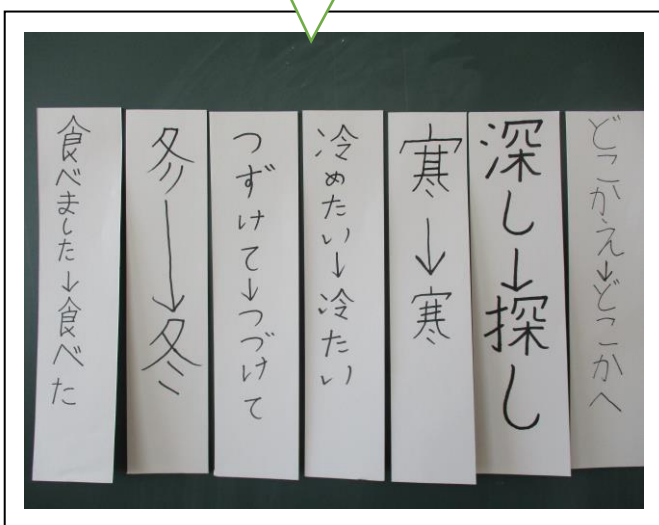 どこかえ→どこかへ
深し→探し
寒→寒
冷めたい→冷たい
つずけて→つづけて
冬→冬
食べました→食べた